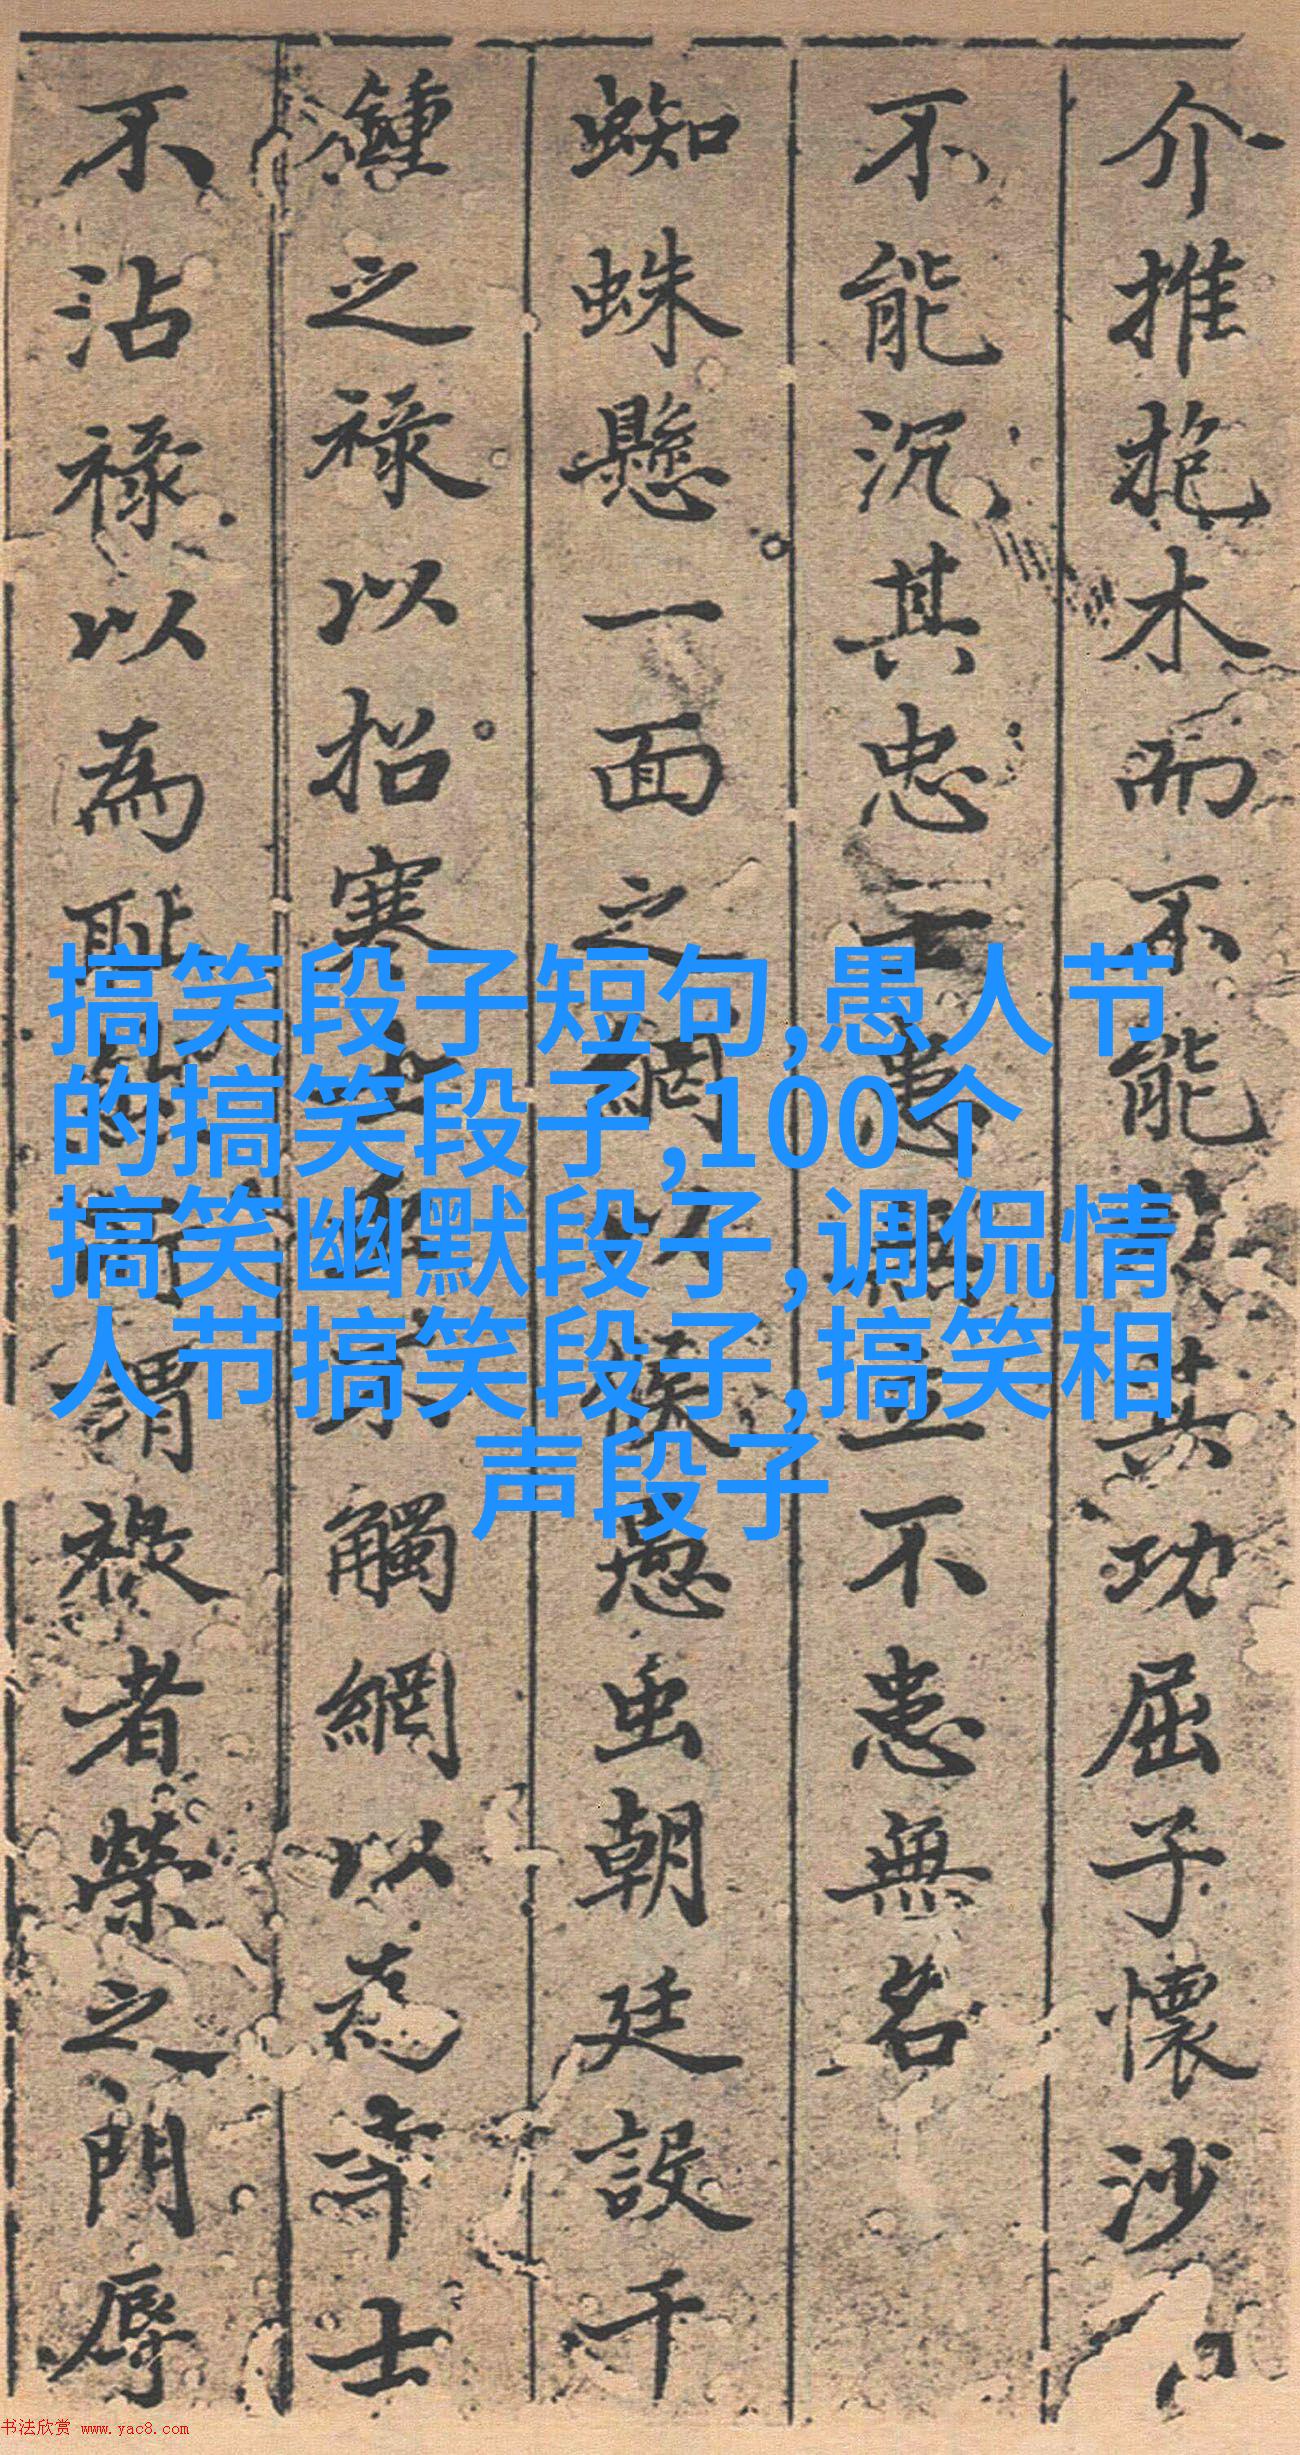 介推抱木而不能其功屈子懷沙
不能沉其忠士患立不患無名
蜘蛛懸一面之網以候愚虫朝廷設千
鍾之禄以招寒士虫不觸網以為幸士
不沾禄以為耻謂禄者榮之門辱
搞笑段子短句,愚人节
的搞笑段子,100个
搞笑幽默段子,调侃情
人节搞笑段子,搞笑相
声段子
书法欣赏 www.yac8.com